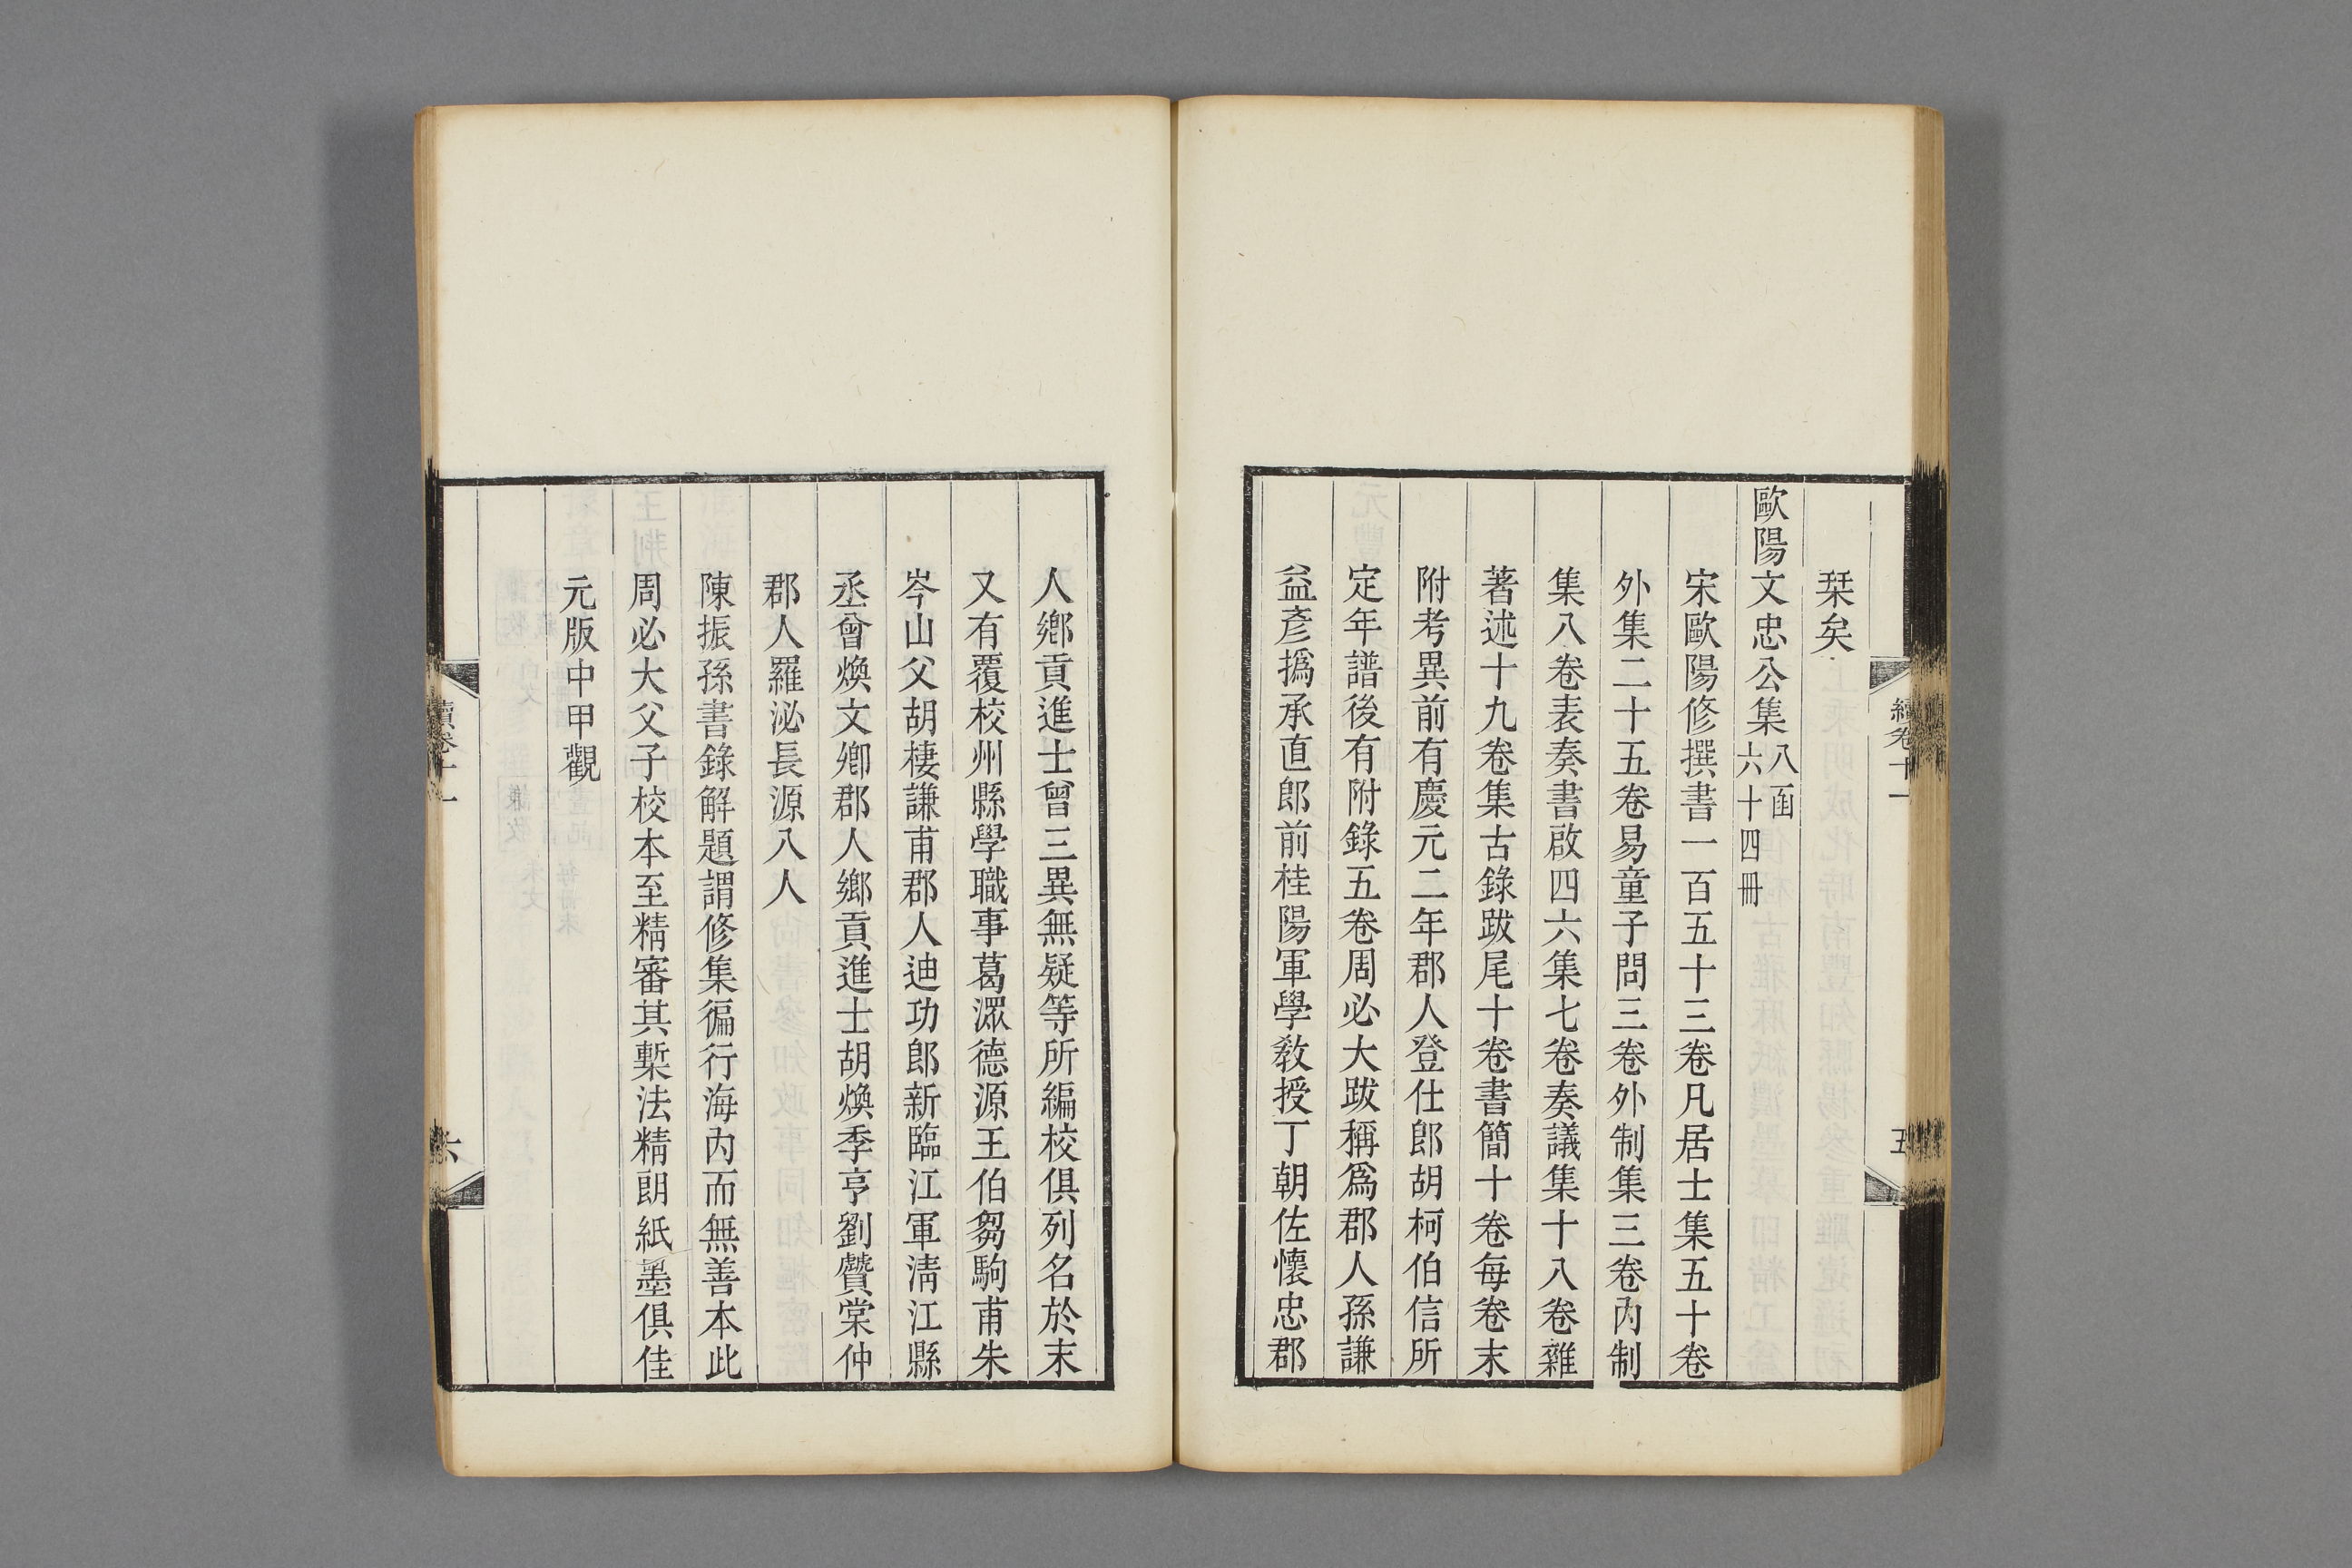 栞矣
歐陽文忠公集八函六十四冊
宋歐陽修撰書一百五十三卷凡居士集五十卷
外集二十五卷易童子問三卷外制集三卷內制
集八卷表奏書啟四六集七卷奏議集十八卷雜
著述十九卷集古錄跋尾十卷書簡十卷每卷末
附考異前有慶元二年郡人登仕郎胡柯伯信所
定年譜後有附錄五卷周必大跋稱爲郡人孫謙
益彥撝承直郎前桂陽軍學敎授丁朝佐懷忠郡
續卷十一
五
人鄉貢進士曾三異無疑等所編校俱列名於末
又有覆校州縣學職事葛潨德源王伯芻駒甫朱
岑山父胡棲謙甫郡人迪功郎新臨江軍淸江縣
丞曾煥文卿郡人鄉貢進士胡煥季亨劉贒棠仲
郡人羅泌長源八人
陳振孫書錄解題謂修集徧行海內而無善本此
周必大父子校本至精審其槧法精朗紙墨俱佳
元版中甲觀
續卷十一
六